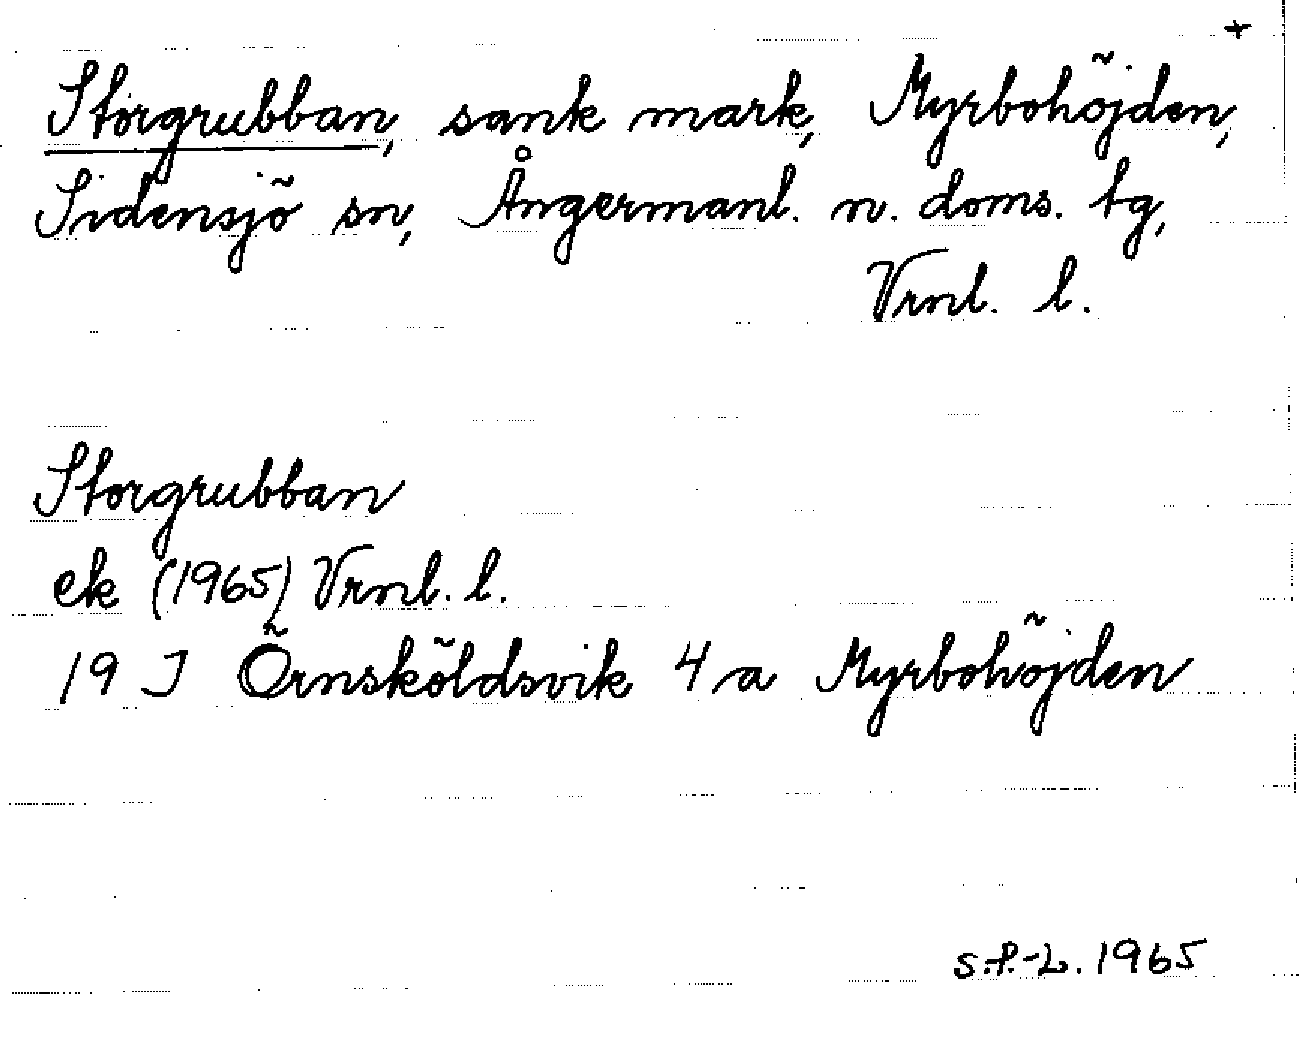 +
Storgrubban, sank mark, Myrbohöjden,
Sidensjö sn, Ångermanl. n. doms. tg,
Vrnl. l.
Storgrubban
ek (1965) Vrnl. l.
19 J Örnsköldsvik 4 a Myrbohöjden
S.P.-L. 1965